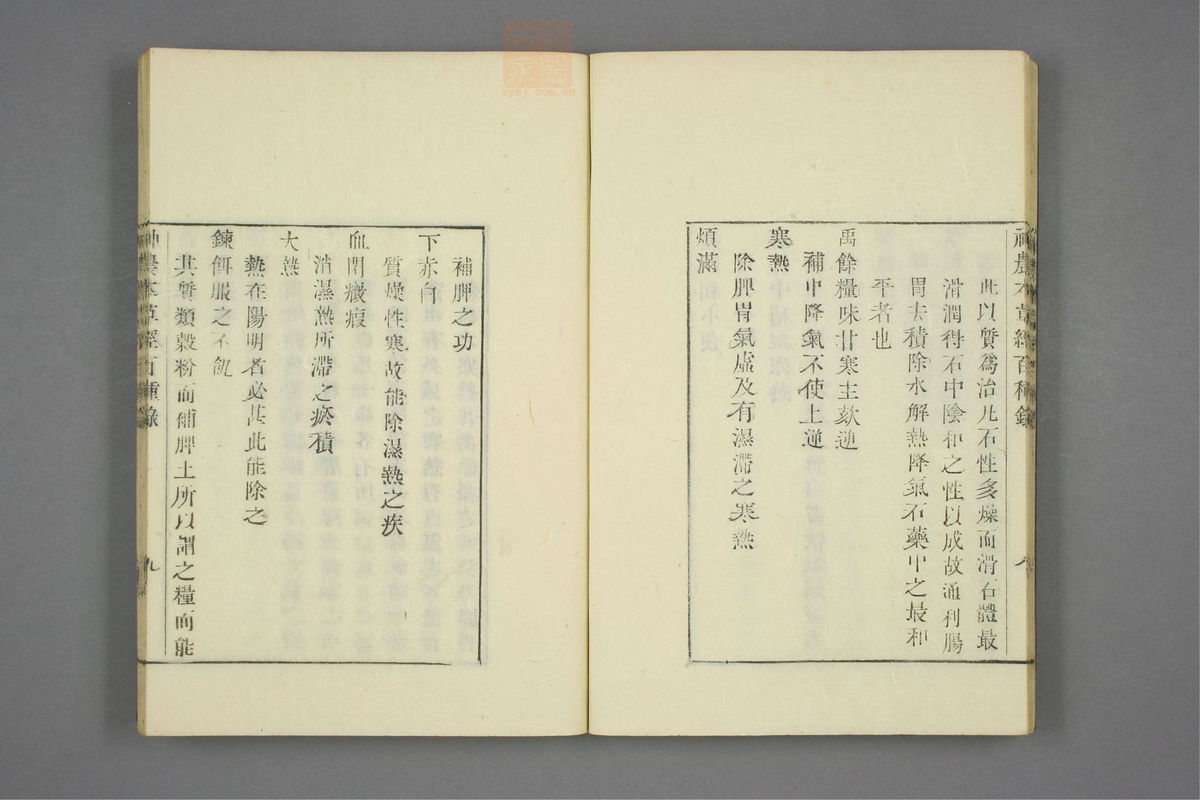 神農本草經百種錄
八
此以質爲治凡石性多燥而滑石體最
滑潤得石中陰和之性以成故通利腸
胃去積除水解熱降氣石藥中之最和
平者也
禹餘糧味甘寒主欬逆
補中降氣不使上逆
寒熱
除脾胃氣虛及有濕滯之寒熱
煩滿
補脾之功
下赤白
質燥性寒故能除濕熱之疾
血閉癥瘕
消濕熱所滯之瘀積
大熱
熱在陽明者必甚此能除之
鍊餌服之不飢
其質類穀粉而補脾土所以謂之糧而能
神農本草經百種錄
九
zysj.com.cn